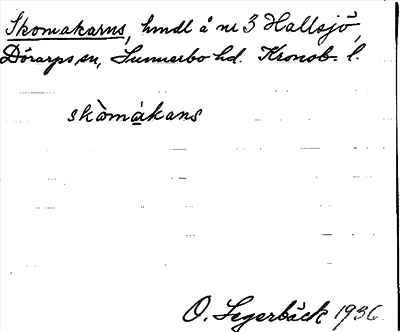 Skomakarns, hmdl å nr 3 Hallsjö,
Dörarps sn, Sunnerbo hd. Kronob. l.
skòmákans
O. Segerbäck 1936.